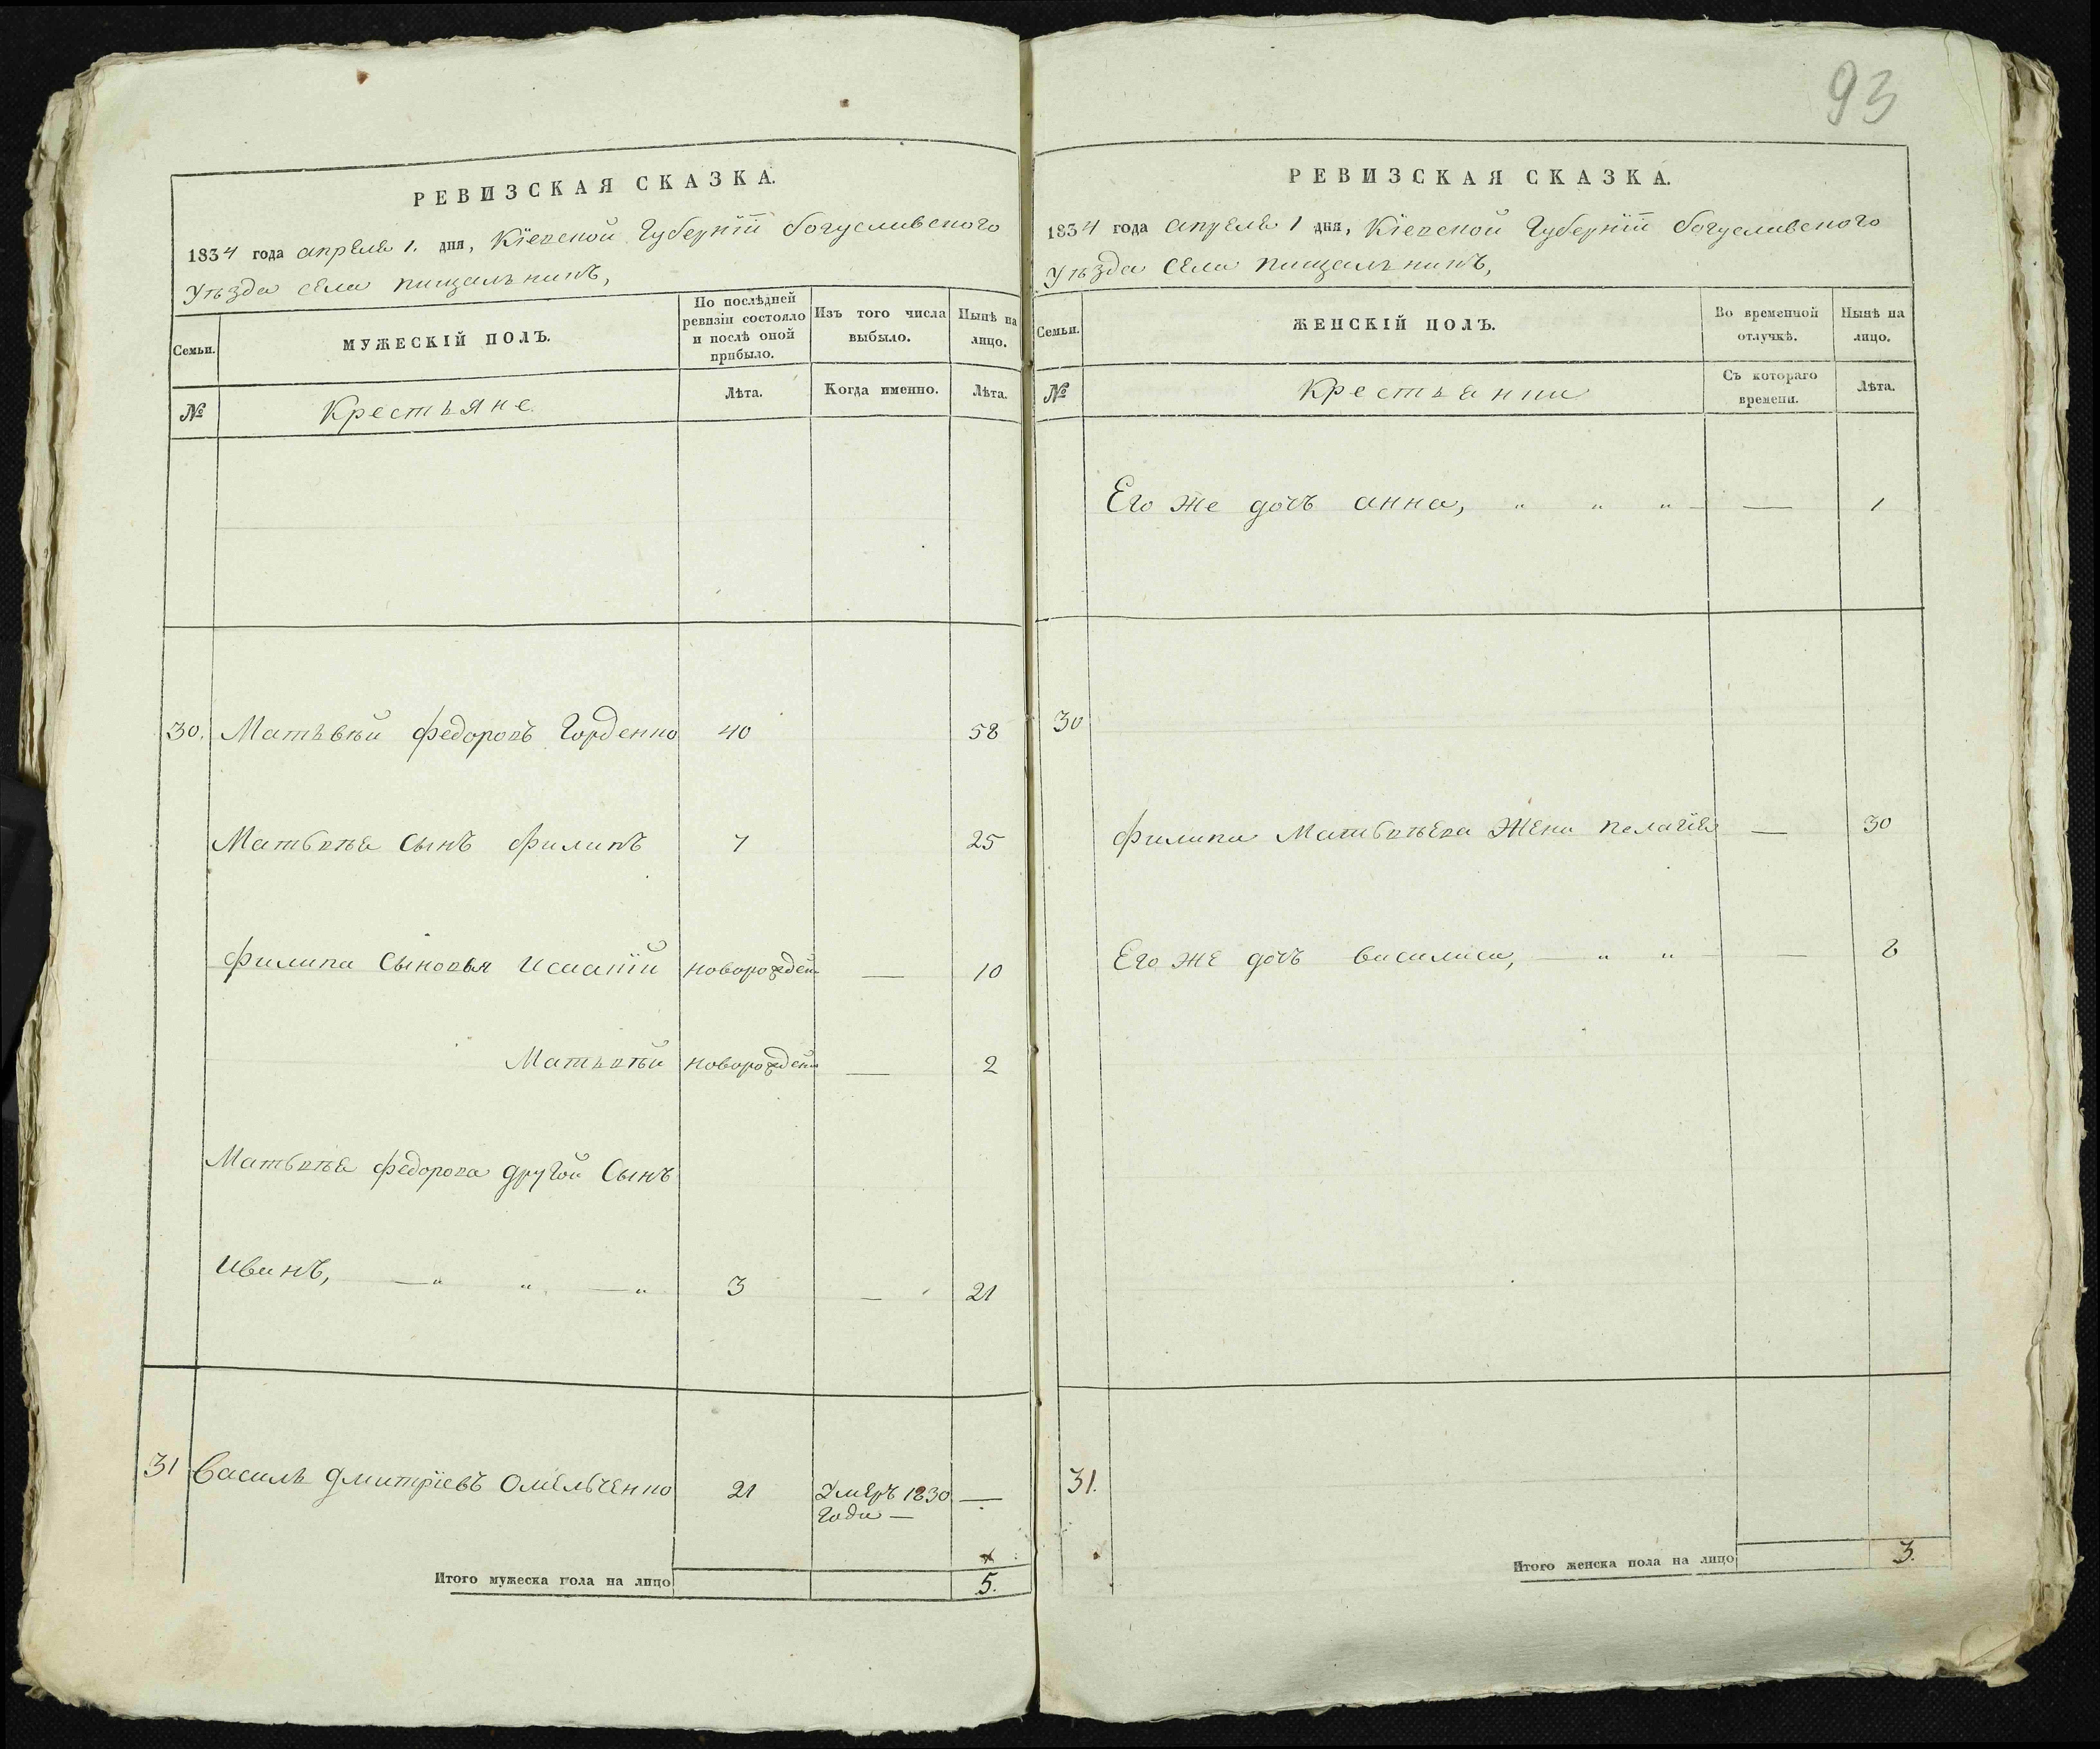 93
РЕВИЗСКАЯ СКАЗКА.
1834 года апреля 1. дня, Кіевской Губерніи богуславского
Уѣзда села пищальникъ,
Семьи.
МУЖЕСКІЙ ПОЛЪ.
По послѣдней
ревизіи состояло
и послѣ оной
прибыло.
Изъ того числа
выбыло.
Нынѣ на
лицо.
№
Крестьяне.
Лѣта.
Когда именно.
Лѣта.
30. Матьвѣй федоровъ Горденко 40 58
Матьвѣя сынъ филипъ 7 25
филипа сыновья Исаакій новорожден — 10
Матьвѣй новорожден — 2
Матьвѣя федорова другой Сынъ
иванъ, — „ „ — „ 3 — 21
31 Василь дмитріевъ Омельченко 21 Умеръ 1830 —
Года —
Итого мужеска пола на лицо 5.
РЕВИЗСКАЯ СКАЗКА.
1834 года апреля 1 дня, Кіевской Губерніи богуславского
Уѣзда села пищальникъ,
Семьи.
ЖЕНСКІЙ ПОЛЪ.
Во временной
отлучкѣ.
Нынѣ на
лицо.
№
Крестьянки
Съ котораго
времени.
Лѣта.
Его же дочь анна, „ „ „ — — 1
30
филипа Матьвѣева Жена пелагія — 30
Его же дочь василиса, — „ „ — — 8
31.
Итого женска пола на лицо 3.